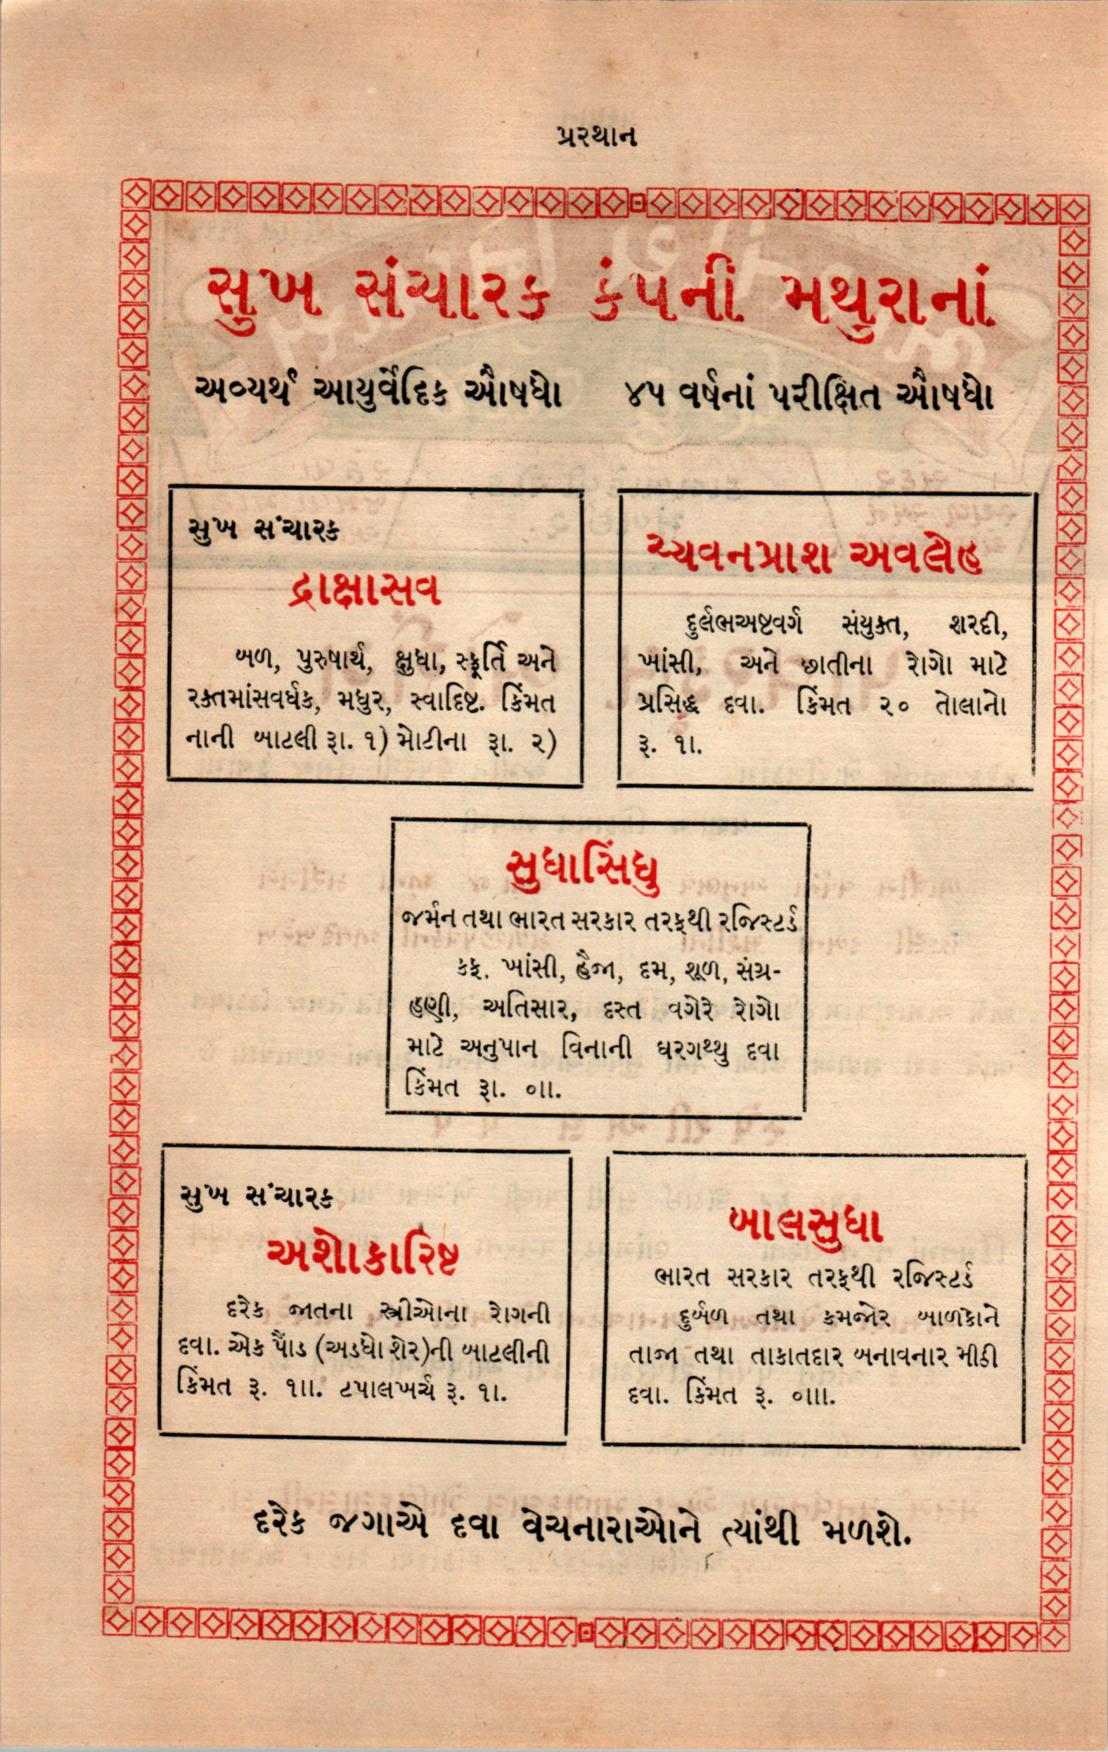 પ્રસ્થાન
સુખ સંચારક કંપની મથુરાનાં
અવ્યર્થ આયુર્વેદિક ઔષધો ૪૫ વર્ષનાં પરીક્ષિત ઔષધો
સુખ સંચારક
દ્રાક્ષાસવ
બળ, પુરુષાર્થ, ક્ષુધા, સ્ફૂર્તિ અને
રક્તમાંસવર્ધક, મધુર, સ્વાદિષ્ટ. કિંમત
નાની બાટલી રૂા. ૧) મોટીના રૂા. ૨)
ચ્યવનપ્રાશ અવલેહ
દુર્લભઅષ્ટવર્ગ સંયુક્ત, શરદી,
ખાંસી, અને છાતીના રોગો માટે
પ્રસિદ્ધ દવા. કિંમત ૨૦ તોલાનો
રૂ. ૧ા.
સુધાસિંધુ
જર્મન તથા ભારત સરકાર તરફથી રજિસ્ટર્ડ
કફ. ખાંસી, હૈજા, દમ, શૂળ, સંગ્ર-
હણી, અતિસાર, દસ્ત વગેરે રોગો
માટે અનુપાન વિનાની ઘરગથ્થુ દવા
કિંમત રૂા. ૦ાા.
સુખ સંચારક
અશોકારિષ્ટ
દરેક જાતના સ્ત્રીઓના રોગની
દવા. એક પૌંડ (અડધો શેર)ની બાટલીની
કિંમત રૂ. ૧ાા. ટપાલખર્ચ રૂ. ૧ા.
બાલસુધા
ભારત સરકાર તરફથી રજિસ્ટર્ડ
દુર્બળ તથા કમજોર બાળકોને
તાજા તથા તાકાતદાર બનાવનાર મીઠી
દવા. કિંમત રૂ. ૦ાાા.
દરેક જગાએ દવા વેચનારાઓને ત્યાંથી મળશે.